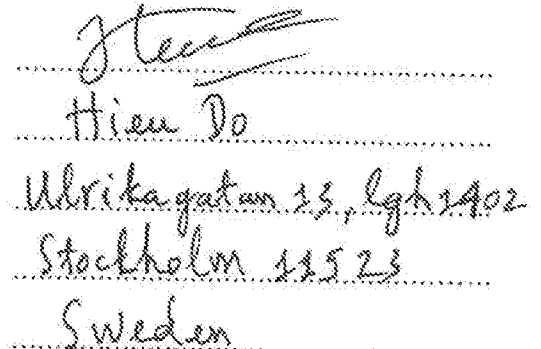 Hieu Do
Ulrikagatan 13, lgh 1402
Stockholm 11523
Sweden